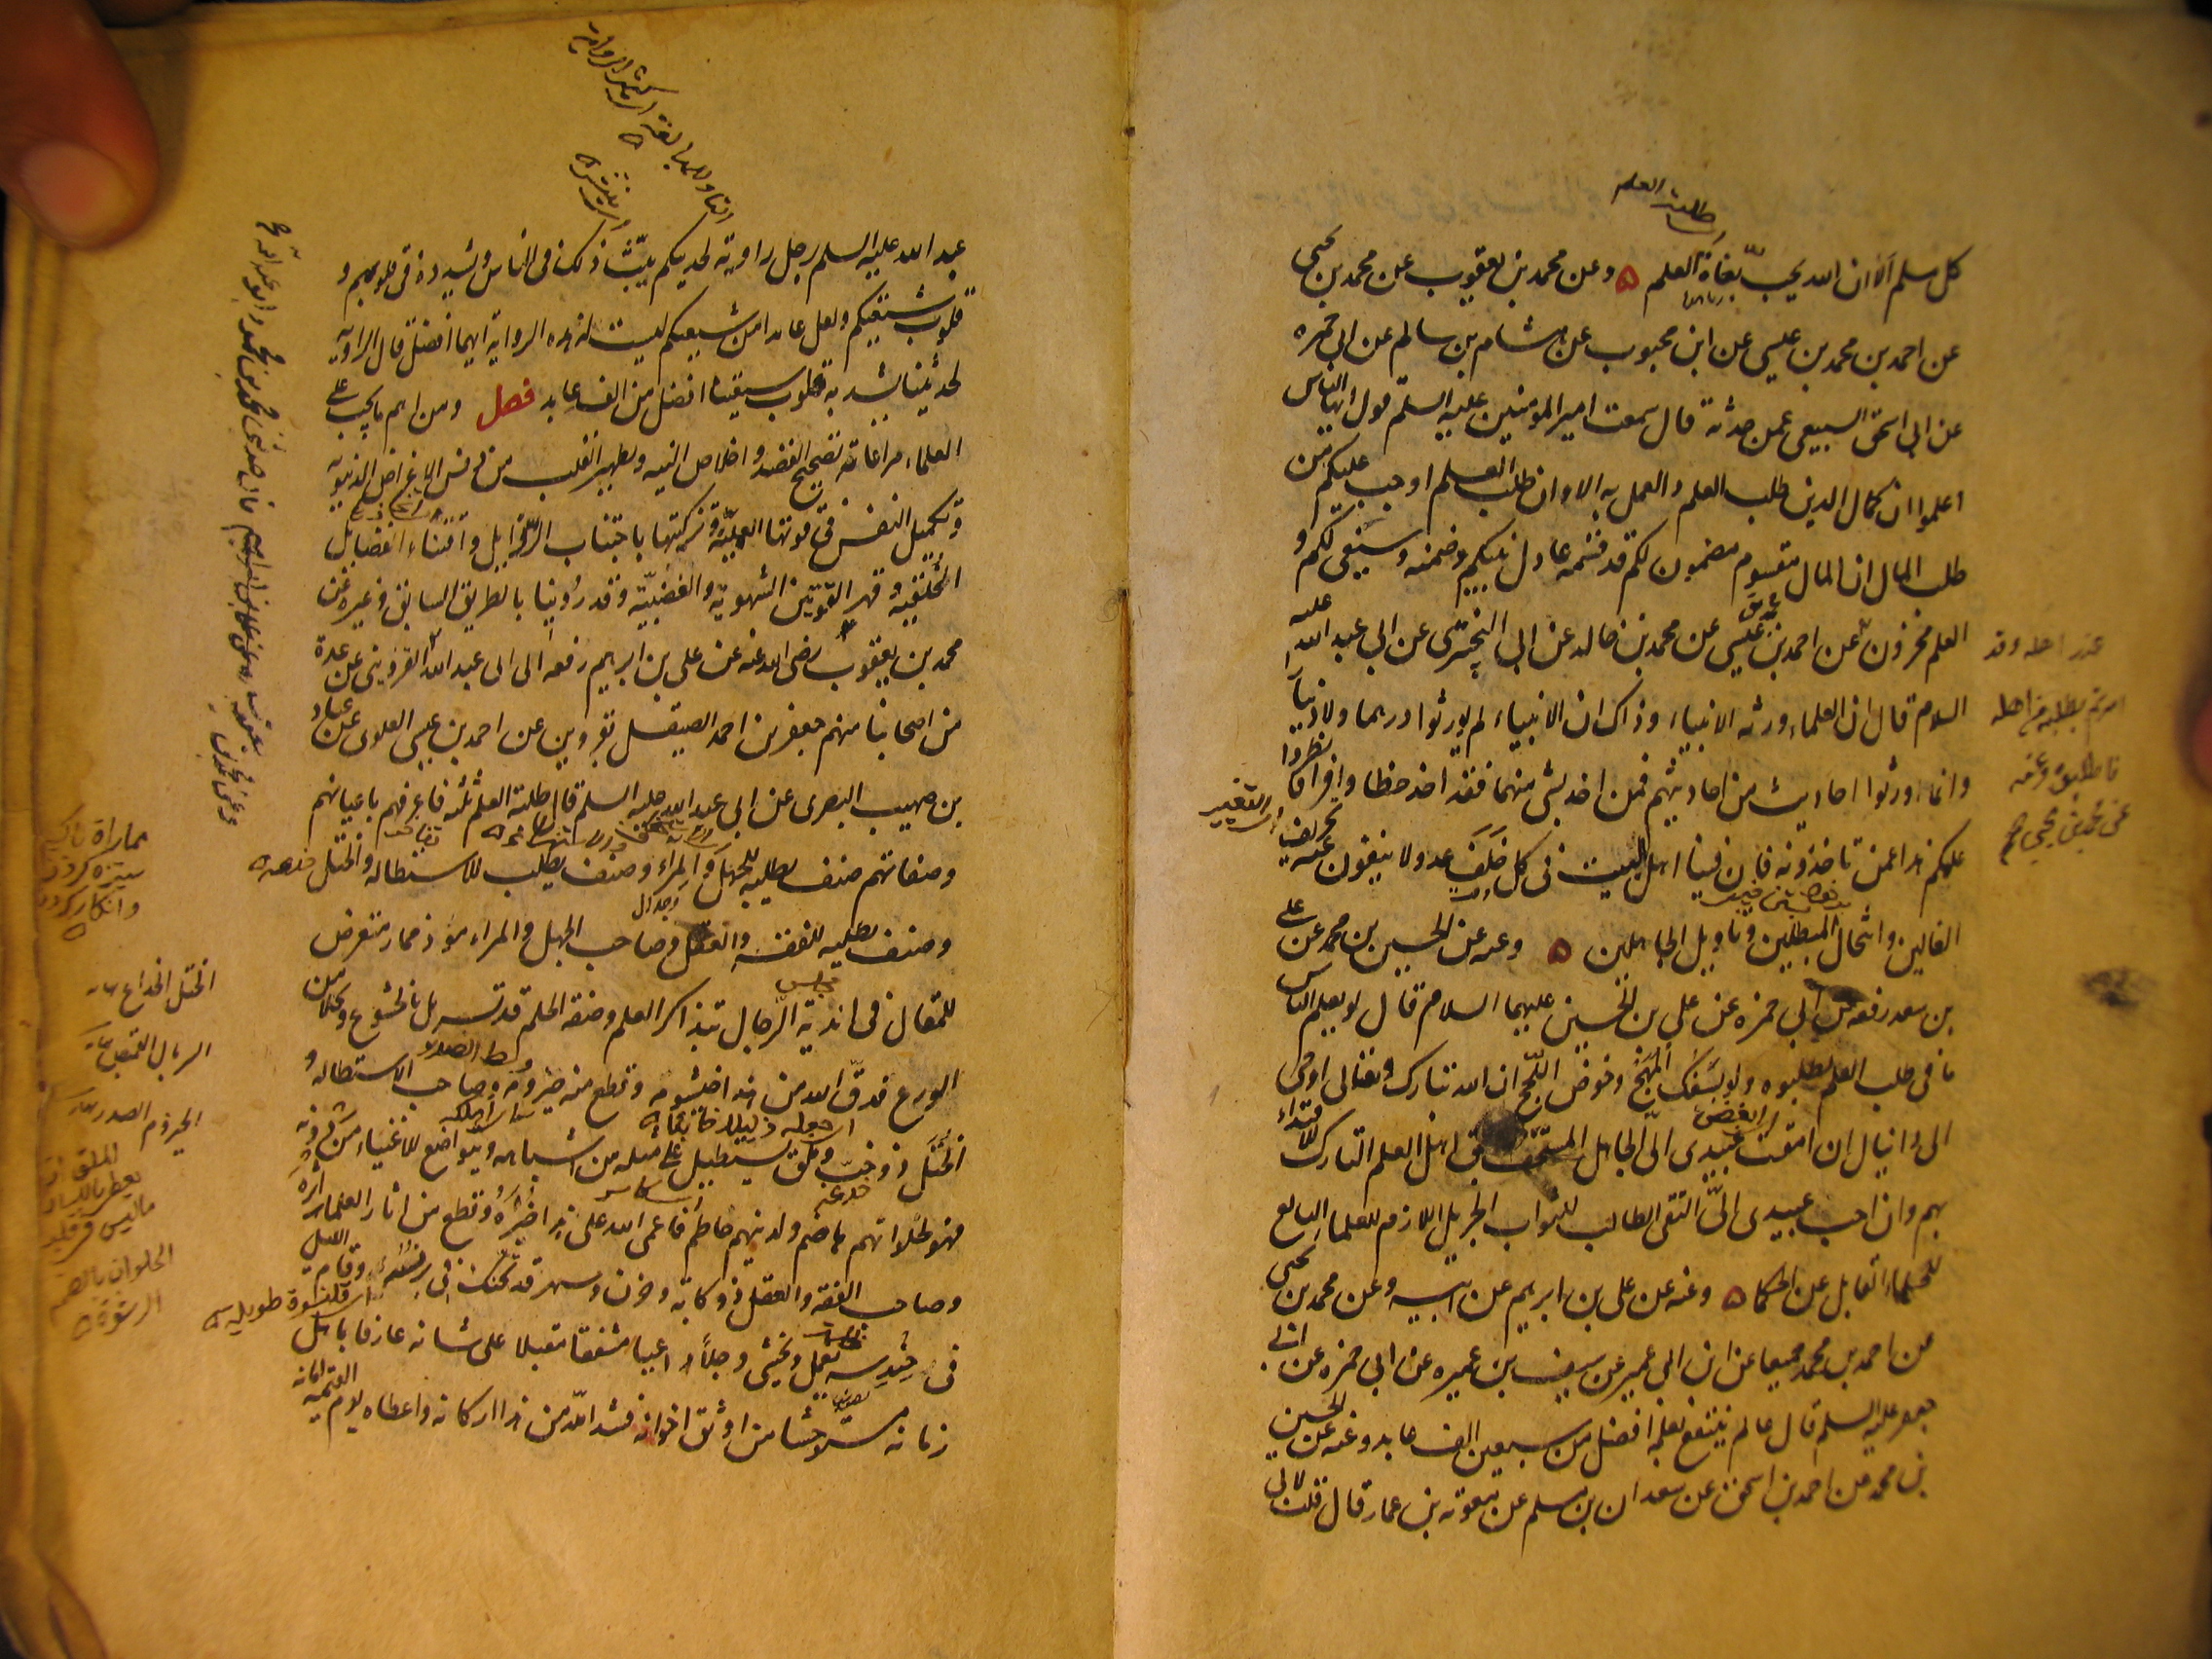 طلبة العلم
كل مسلم الا ان الله يحبّ بغاة العلم وعن محمد بن يعقوب عن محمد بن يحيى
عن احمد بن محمد بن عيسى عن ابن محبوب عن هشام بن سالم عن ابى حمزه
عن ابى اسحق السبيعى عمن حدثه قال سمعت امير المومنين عليه السلم يقول ايها الناس
اعلموا ان كمال الدين طلب العلم والعمل به الا وان طلب العلم اوجب عليكم من
طلب المال ان المال مقسوم مضمون لكم قد قسمه عادل بينكم وضمنه وسيفى لكم و
العلم مخزون عن احمد بن عيسى عن محمد بن خالد عن ابى البخترى عن ابى عبد الله عليه
السلام قال ان العلماء ورثه الانبياء وذاك ان الانبياء لم يورثوا درهما ولا دينارا
وانما اورثوا احاديث من احاديثهم فمن اخذ بشى منها فقد اخذ حظا وافرا فانظروا
علمكم هذا عمن تاخذونه فان فينا اهل البيت فى كل خلف عدولا ينفون عنه تحريف
الغالين وانتحال المبطلين وتاويل الجاهلين وعنه عن الحسين بن محمد عن على
بن سعد رفعه عن ابى حمزه عن على بن الحسين عليهما السلام قال لو يعلم الناس
ما فى طلب العلم لطلبوه ولو بسفك المهج وخوض اللجج ان الله تبارك وتعالى اوحى
الى دانيال ان امقت عبيدى الىّ الجاهل المستخف بحق اهل العلم التارك للاقتداء
بهم وان احب عبيدى الىّ التقى الطالب للثواب الجزيل اللازم للعلماء التابع
للحلماء القابل عن الحكماء وعنه عن على بن ابرهيم عن ابيه وعن محمد بن يحيى
عن احمد بن محمد جميعا عن ابن ابى عمير عن سيف بن عميره عن ابى حمزه عن ابى
جعفر عليه السلم قال عالم ينتفع بعلمه افضل من سبعين الف عابد وعنه عن الحسين
بن محمد عن احمد بن اسحق عن سعدان بن مسلم عن معوية بن عمار قال قلت لابى
عند اهله وقد
امرتم بطلبه من اهله
فاطلبوه وعنه
عن محمد بن يحيى
التغيير
عبد الله عليه السلم رجل راوية لحديثكم يبثّ ذلك فى الناس ويشدده فى قلوبهم و
قلوب شيعتكم ولعل عابدا من شيعتكم ليست له هذه الرواية ايهما افضل قال الراوية
لحديثنا يشد به قلوب شيعتنا افضل من الف عابد فصل ومن اهم ما يجب على
العلماء مراعاته تصحيح القصد واخلاص النيه وتطهير القلب من دنس الاغراض الدنيويه
وتكميل النفس فى قوتها العمليّة وتزكيتها باجتناب الرذايل واقتناء الفضايل
الخلقيه وقهر القوتين الشهوية والغضبيّة وقد رُوينا بالطريق السابق وغيره عن
محمد بن يعقوب رضى الله عنه عن على بن ابرهيم رفعه الى ابى عبد الله القزوينى عن عدة
من اصحابنا منهم جعفر بن احمد الصيقل بقزوين عن احمد بن عيسى العلوى عن عباد
بن صهيب البصرى عن ابى عبد الله عليه السلم قال طلبة العلم ثلثه فاعرفهم باعيانهم
وصفاتهم صنف يطلبه للجهل والمراء وصنف يطلبه للاستطاله والختل
وصنف يطلبه للفقه والعقل وصاحب الجهل والمراء موذ ممار متعرض
للمقال فى اندية الرجال بتذاكر العلم وصفه الحلم قد تسربل بالخشوع وتخلا من
الورع فدقّ الله من هذا خيشومه وقطع منه حيزومه وصاحب الاستطاله و
الختل ذو خبّ وملق يستطيل على مثله من اشباهه ويتواضع للاغنياء من دونه
فهو لحلواتهم هاضم ولدينهم حاطم فاعمى الله على هذا خبره وقطع من اثار العلماء اثره
وصاحب الفقه والعقل ذو كابة وحزن وسهر قد تحنك فى برنسه وقام الليل
فى حندسه يعمل ويخشى وجلا داعيا مشفقا مقبلا على شانه عارفا باهل
زمانه مستوحشا من اوثق اخوانه فشد الله من هذا اركانه واعطاه يوم القيمه امانه
قلنسوة طويله
الختل الخداع
السربال القميص
الحيزوم الصدر
الحلوان بالضم
الرشوة